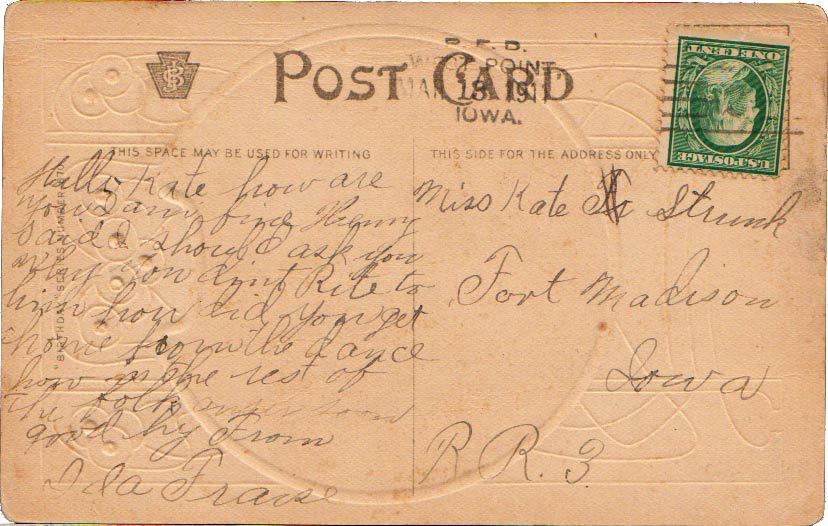 POST CARD
R.F.D.
WEST POINT,
MAR 13 1911
IOWA.
ONE CENT
U.S. POSTAGE
THIS SPACE MAY BE USED FOR WRITING
THIS SIDE FOR THE ADDRESS ONLY
Hello Kate how are
you I am fine Henry
said I should ask you
why you dont Rite to
him how did you get
home from the dance
how is the rest of
the folks answer soon
good by From
Ida Fraise
Miss Kate Strunk
Fort Madison
Iowa
R R. 3
"BIRTHDAY" SERIES NUMBER